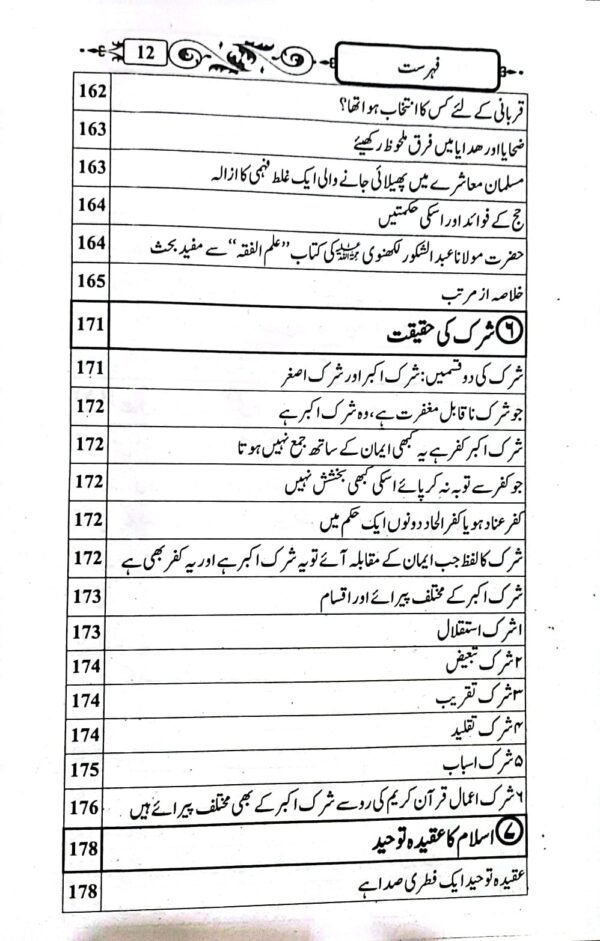 فہرست
12
قربانی کے لئے کس کا انتخاب ہوا تھا؟ 162
ضحایا اور ھدایا میں فرق ملحوظ رکھیئے 163
مسلمان معاشرے میں پھیلائی جانے والی ایک غلط فہمی کا ازالہ 163
حج کے فوائد اور اسکی حکمتیں 164
حضرت مولانا عبد الشکور لکھنوی رحمۃ اللہ علیہ کی کتاب ”علم الفقہ“ سے مفید بحث 164
خلاصہ از مرتب 165
۶ شرک کی حقیقت 171
شرک کی دو قسمیں: شرک اکبر اور شرک اصغر 171
جو شرک ناقابل مغفرت ہے، وہ شرک اکبر ہے 172
شرک اکبر کفر ہے یہ کبھی ایمان کے ساتھ جمع نہیں ہوتا 172
جو کفر سے توبہ نہ کر پائے اسکی کبھی بخشش نہیں 172
کفر عناد ہو یا کفر الحاد دونوں ایک حکم میں 172
شرک کا لفظ جب ایمان کے مقابلہ آئے تو یہ شرک اکبر ہے اور یہ کفر بھی ہے 172
شرک اکبر کے مختلف پیرائے اور اقسام 173
۱ شرک استقلال 173
۲ شرک تبعیض 174
۳ شرک تقریب 174
۴ شرک تقلید 174
۵ شرک اسباب 175
۶ شرک اعمال قرآن کریم کی رو سے شرک اکبر کے بھی مختلف پیرائے ہیں 176
۷ اسلام کا عقیدہ توحید 178
عقیدہ توحید ایک فطری صدا ہے 178